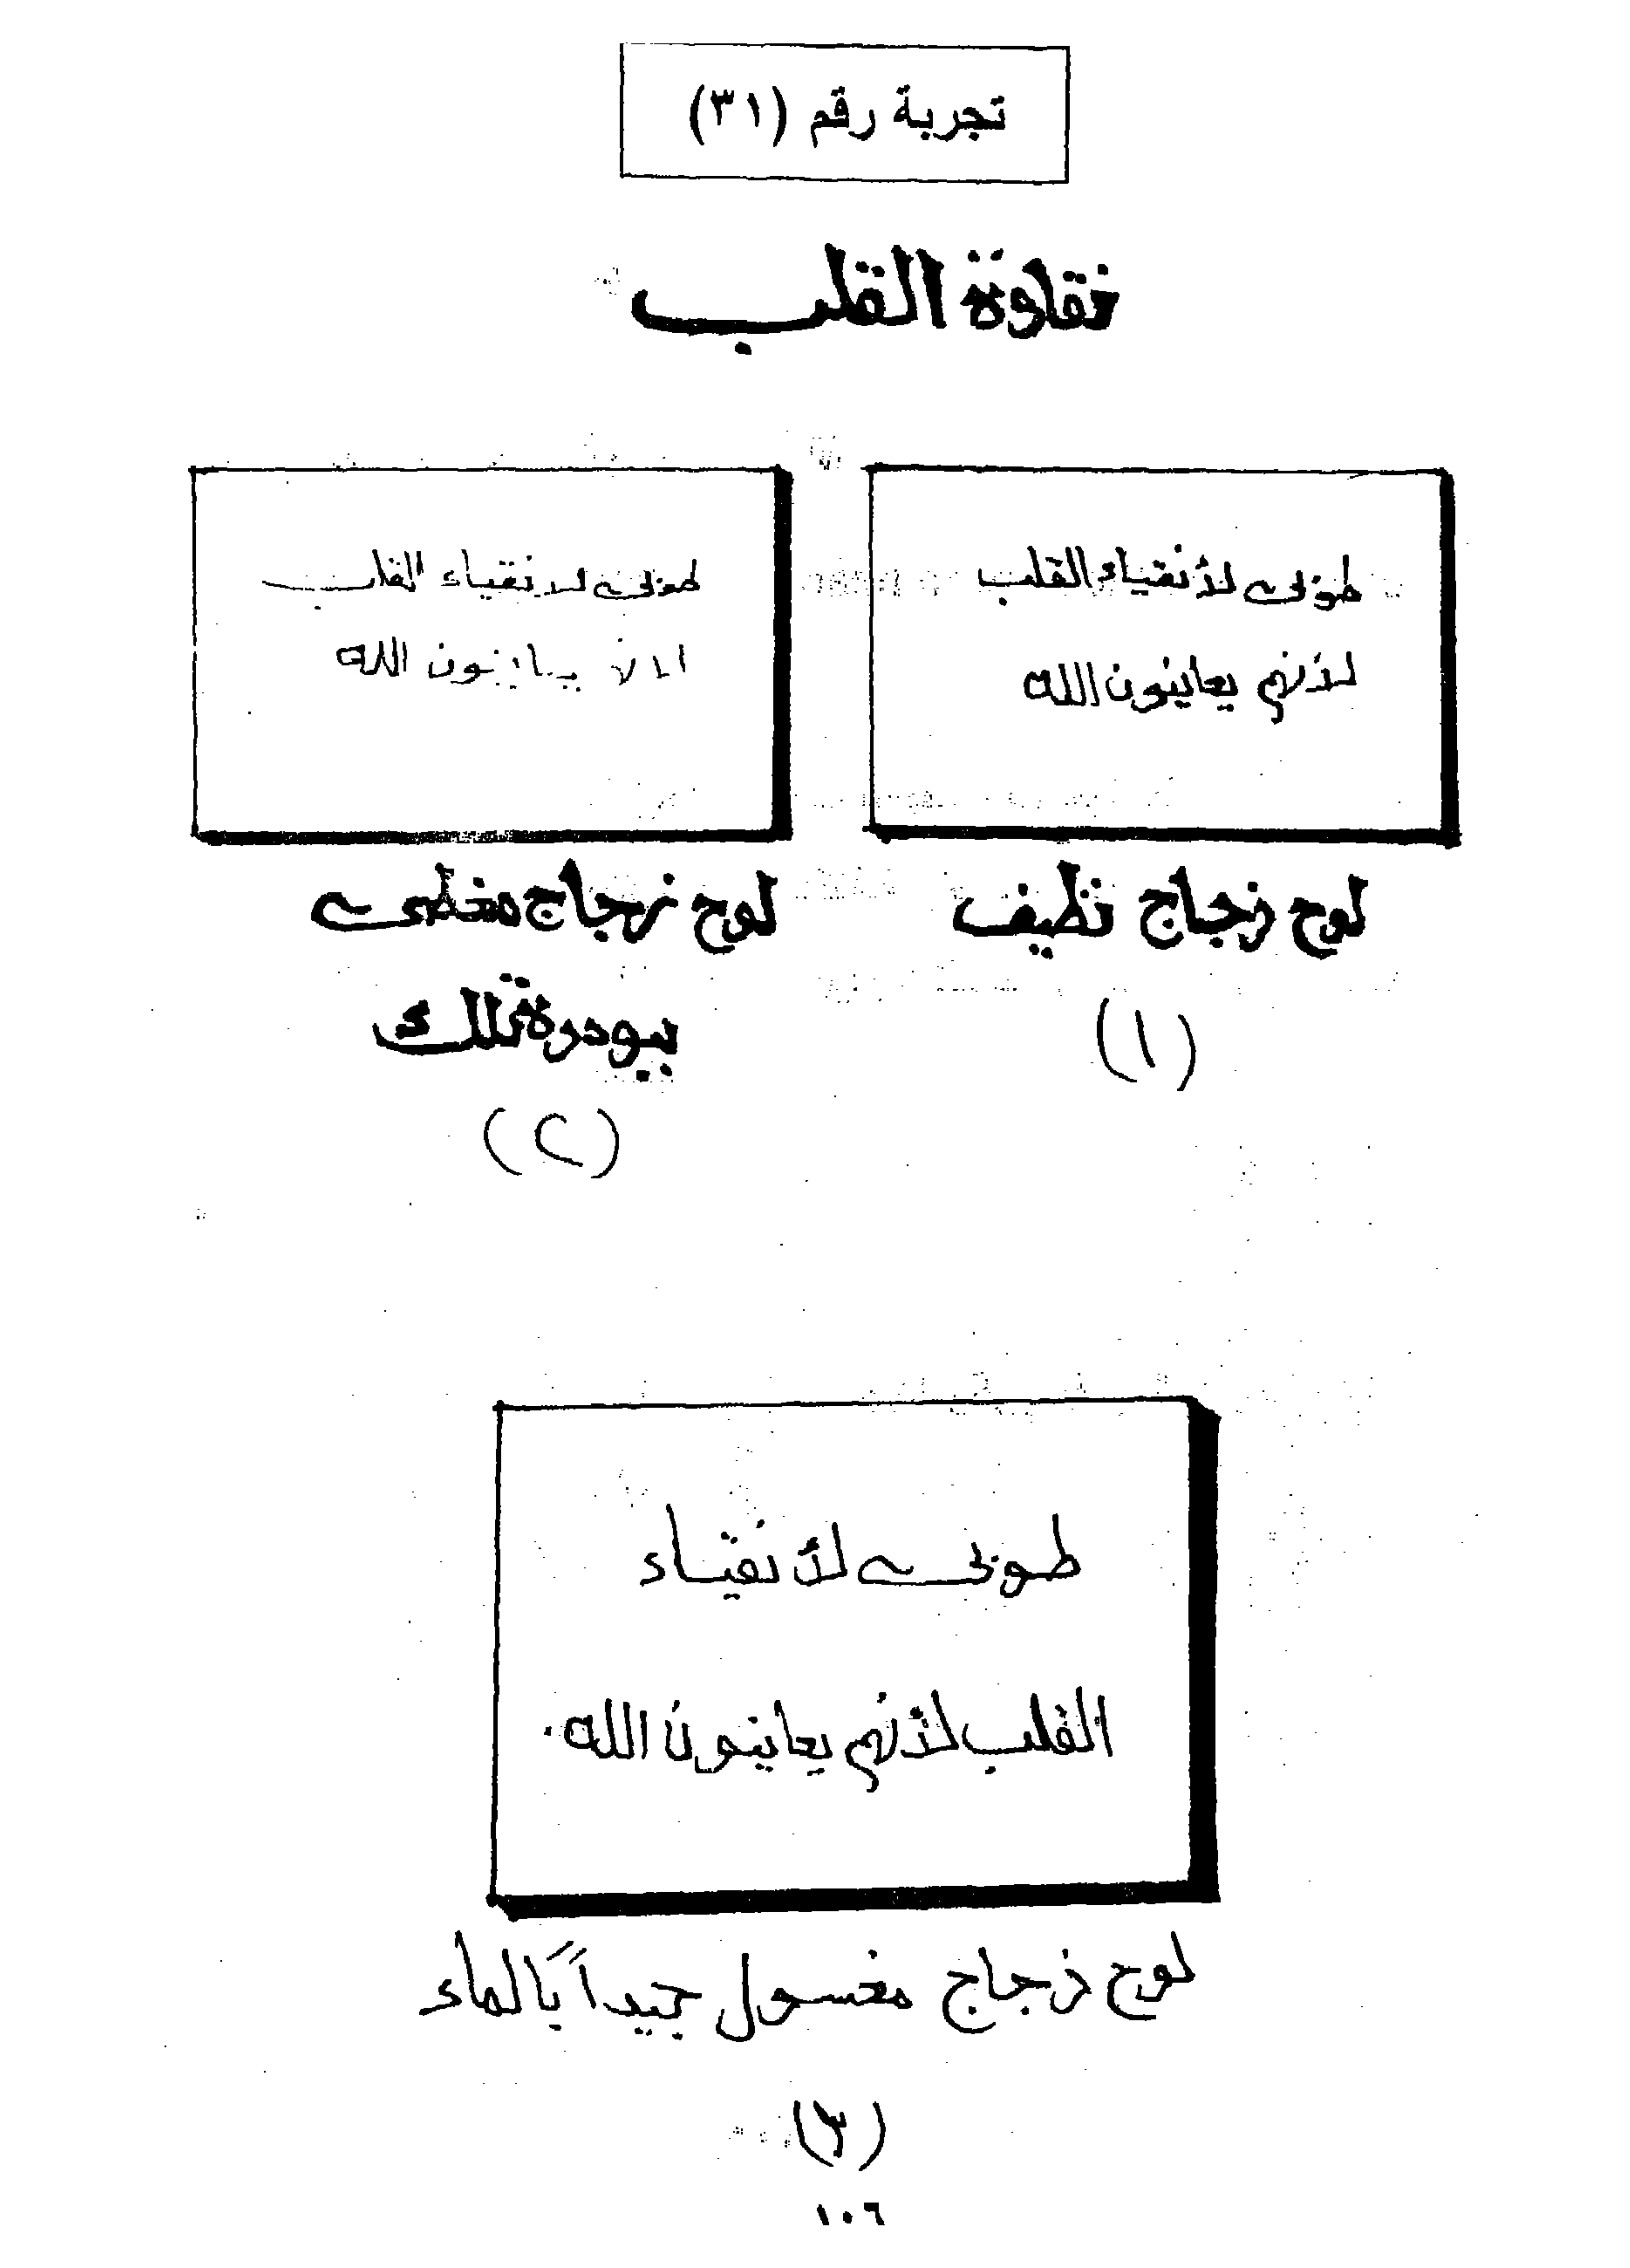 تجربة رقم (٣١)
نقاوة القلب
طوبى لأنقياء القلب
لأنهم يعاينون الله
لوح زجاج نظيف
(١)
طوبى لانقياء القلب
يعاينون الله
لوح زجاج مغطى
ببودرة تلك
(٢)
طوبى لأنقياء
القلب لأنهم يعاينون الله.
لوح زجاج مغسول جيداً بالماء
(٣)
١٠٦